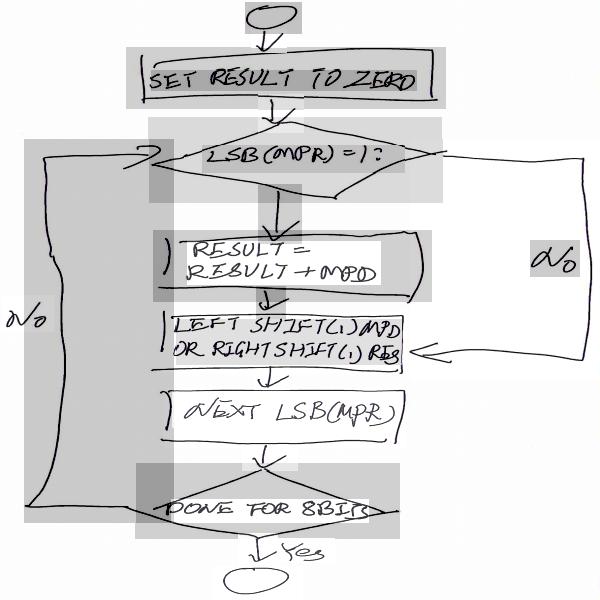 SET RESULT TO ZERO
LSB(MPR) = 1?
RESULT =
RESULT + MPD
No
LEFT SHIFT(1) MPD
OR RIGHT SHIFT(1) RES
No
NEXT LSB(MPR)
DONE FOR 8BITS
Yes